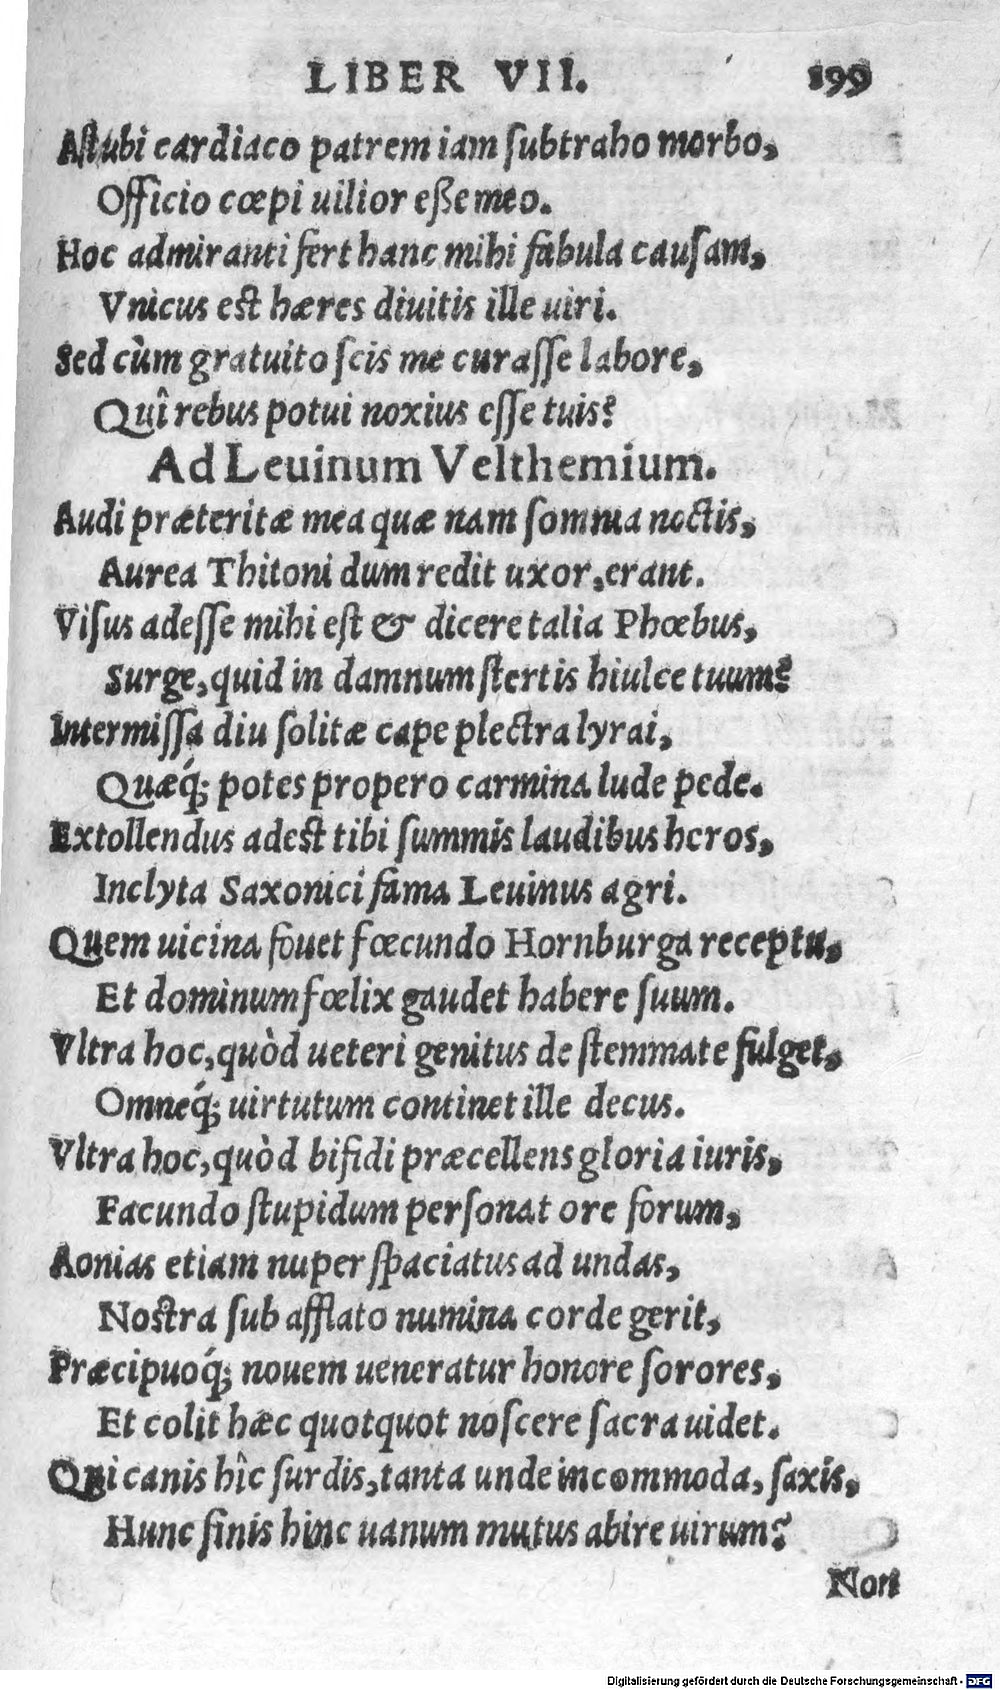 LIBER VII. 199
Aſt ubi cardiaco patrem iam ſubtraho morbo,
Officio cœpi uilior eße meo.
Hoc admiranti fert hanc mihi fabula cauſam,
Vnicus est hæres diuitis ille uiri.
Sed cùm gratuito ſcis me curaſſe labore,
Quî rebus potui noxius eſſe tuis?
Ad Leuinum Velthemium.
Audi præteritæ mea quæ nam ſomnia noctis,
Aurea Thitoni dum redit uxor, erant.
Viſus adeſſe mihi eſt & dicere talia Phœbus,
Surge, quid in damnum ſtertis hiulce tuum?
Intermiſſa diu ſolitæ cape plectra lyrai,
Quæq́; potes propero carmina lude pede.
Extollendus adest tibi ſummis laudibus heros,
Inclyta Saxonici fama Leuinus agri.
Quem uicina fouet fœcundo Hornburga receptu,
Et dominum fœlix gaudet habere ſuum.
Vltra hoc, quòd ueteri genitus de ſtemmate fulget,
Omneq́; uirtutum continet ille decus.
Vltra hoc, quòd bifidi præcellens gloria iuris,
Facundo ſtupidum perſonat ore forum,
Aonias etiam nuper ſpaciatus ad undas,
Nostra ſub afflato numina corde gerit,
Præcipuoq́; nouem ueneratur honore ſorores,
Et colit hæc quotquot noſcere ſacra uidet.
Qui canis hîc ſurdis, tanta unde incommoda, ſaxis,
Hunc ſinis hinc uanum mutus abire uirum?
Non
Digitalisierung gefördert durch die Deutsche Forschungsgemeinschaft - DFG